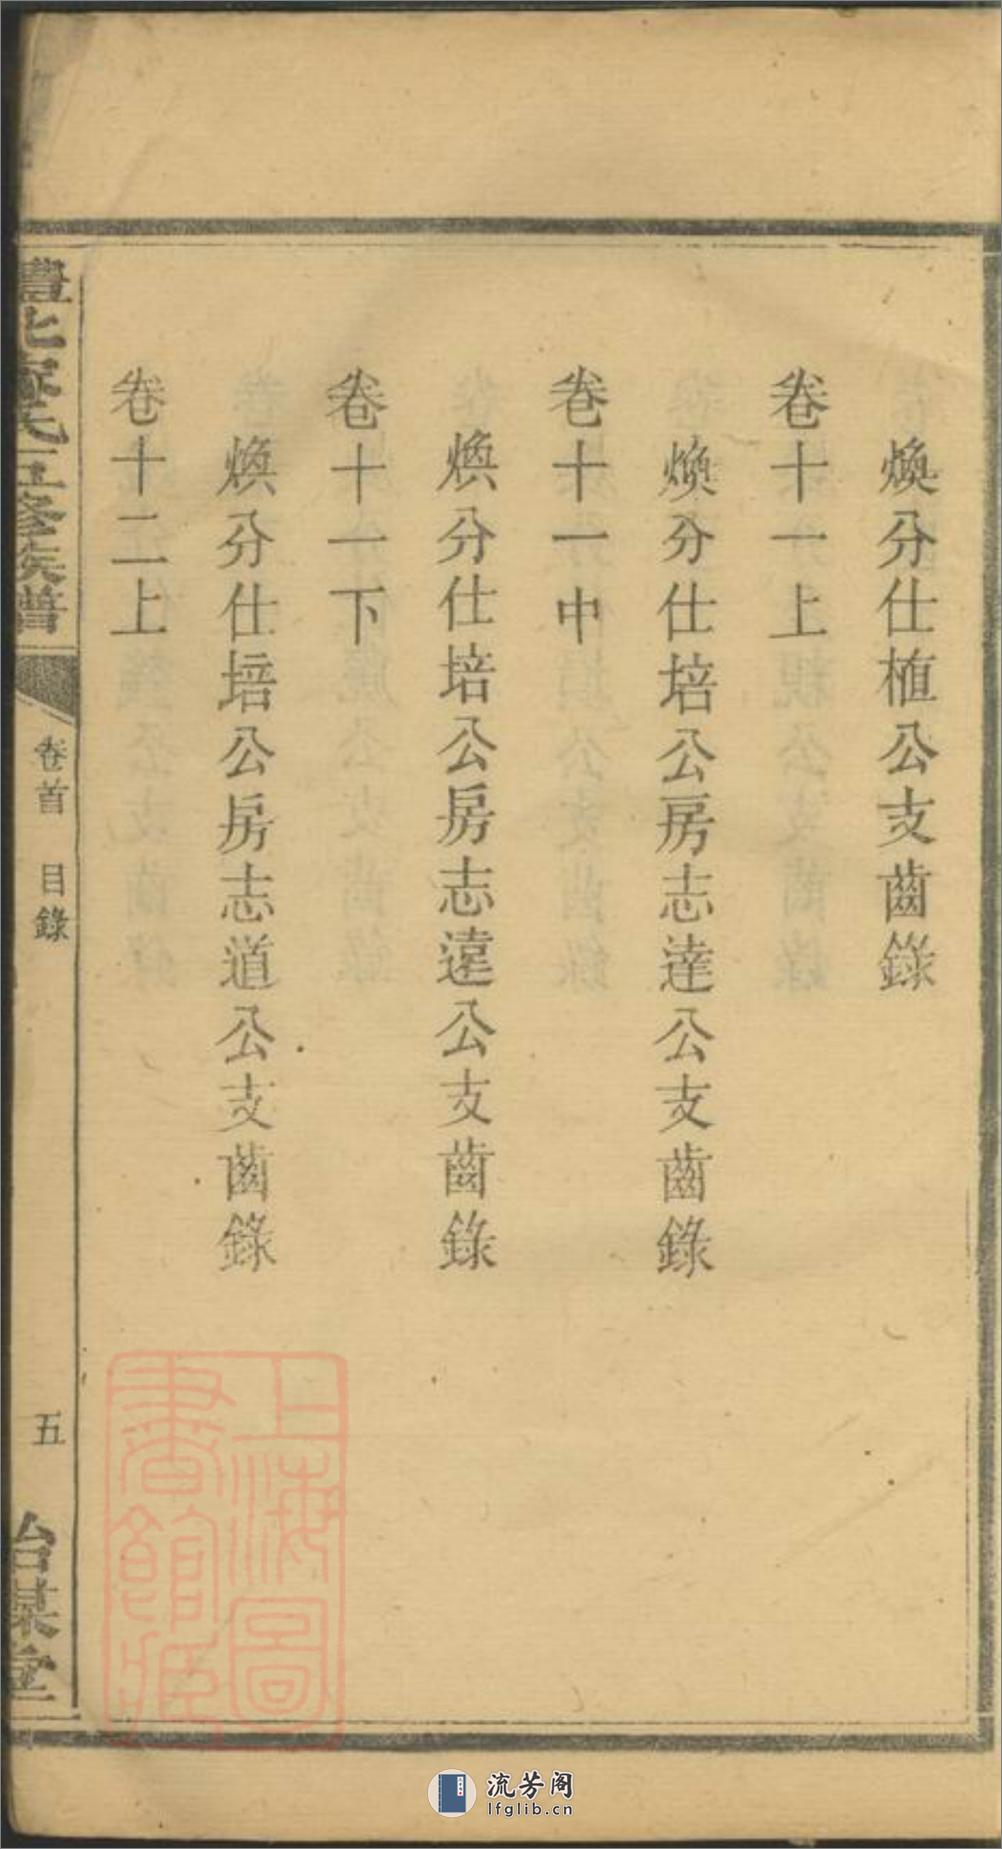 煥分仕植公支齒錄
卷十一上
煥分仕培公房志達公支齒錄
卷十一中
煥分仕培公房志遠公支齒錄
卷十一下
煥分仕培公房志道公支齒錄
卷十二上
氏五修族譜
卷首 目錄
五
堂
上海圖
書館藏
流芳阁
lfglib.cn